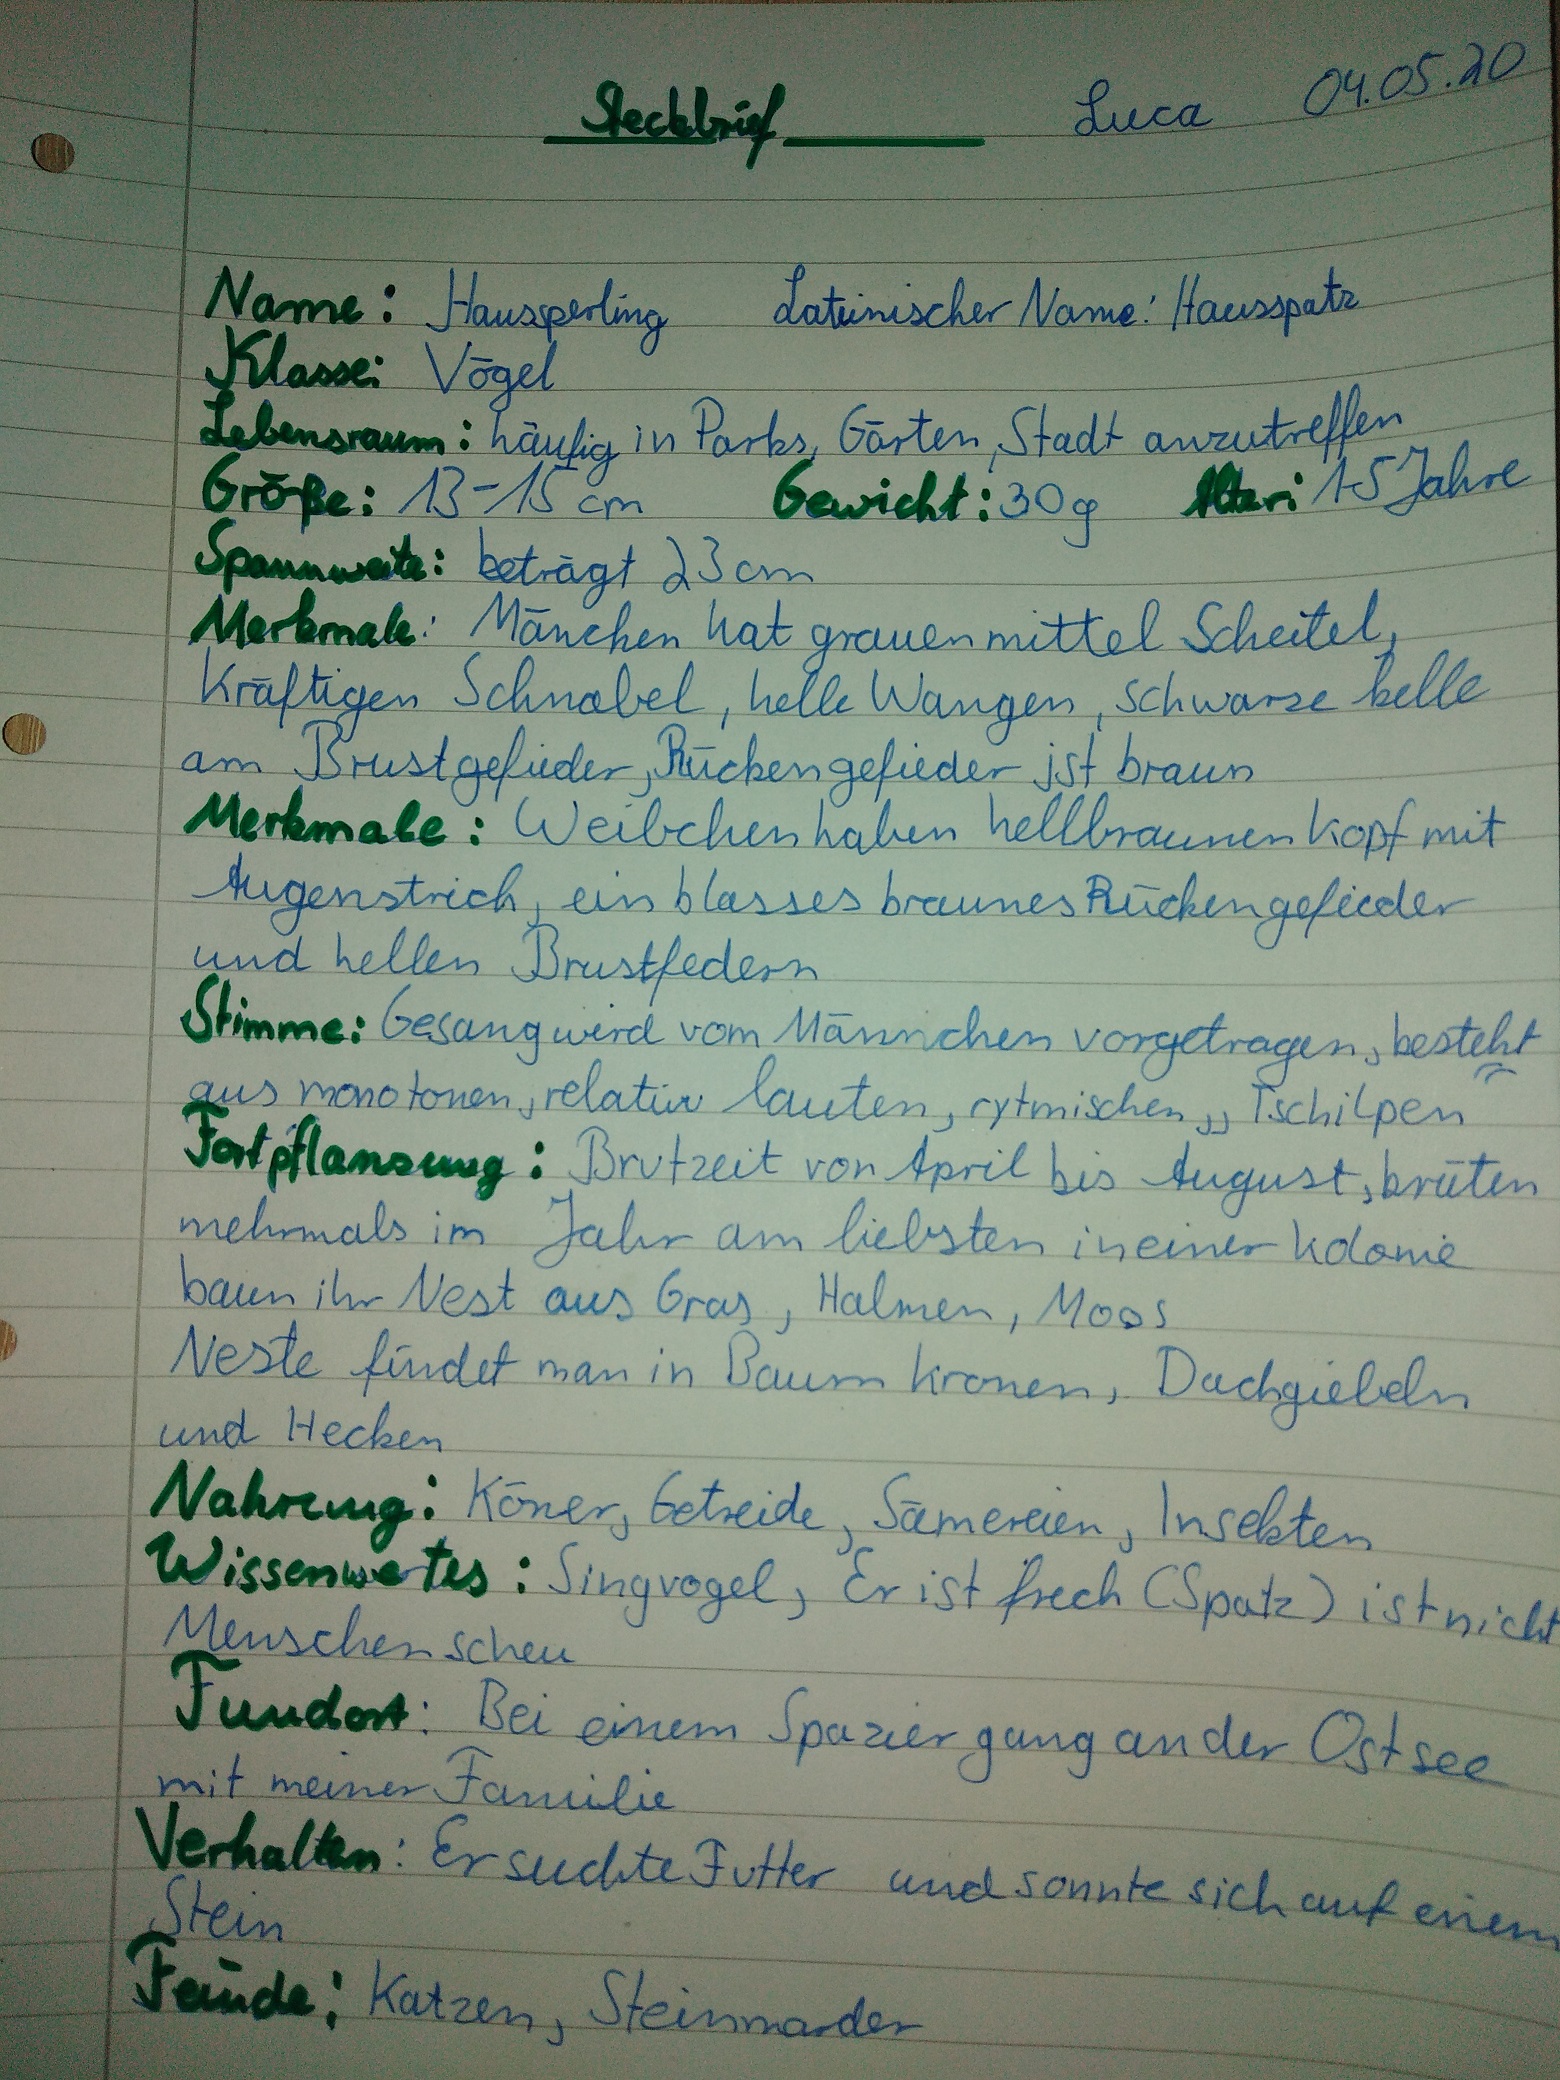 Steckbrief Luca 04.05.20
Name: Haussperling Lateinischer Name: Hausspatz
Klasse: Vögel
Lebensraum: häufig in Parks, Gärten, Stadt anzutreffen
Größe: 13-15 cm Gewicht: 30g Alter: 1-5 Jahre
Spannweite: beträgt 23 cm
Merkmale: Mänchen hat grauen mittel Scheitel,
Kräftigen Schnabel, helle Wangen, schwarze kelle
am Brustgefieder, Rückengefieder ist braun
Merkmale: Weibchen haben hellbraunen Kopf mit
Augenstrich, ein blasses braunes Rückengefieder
und hellen Brustfedern
Stimme: Gesang wird vom Männchen vorgetragen, besteht
aus monotonen, relativ lauten, rytmischen „Tschilpen
Fortpflanzung: Brutzeit von April bis August, brüten
mehrmals im Jahr am liebsten in einer Kolonie
baun ihr Nest aus Gras, Halmen, Moos
Neste findet man in Baum kronen, Dachgiebeln
und Hecken
Nahrung: Köner, Getreide, Sämereien, Insekten
Wissenwertes: Singvogel, Er ist frech (Spatz) ist nicht
Menschen scheu
Fundort: Bei einem Spazier gang an der Ostsee
mit meiner Familie
Verhalten: Er suchte Futter und sonnte sich auf einem
Stein
Feinde: Katzen, Steinmarder